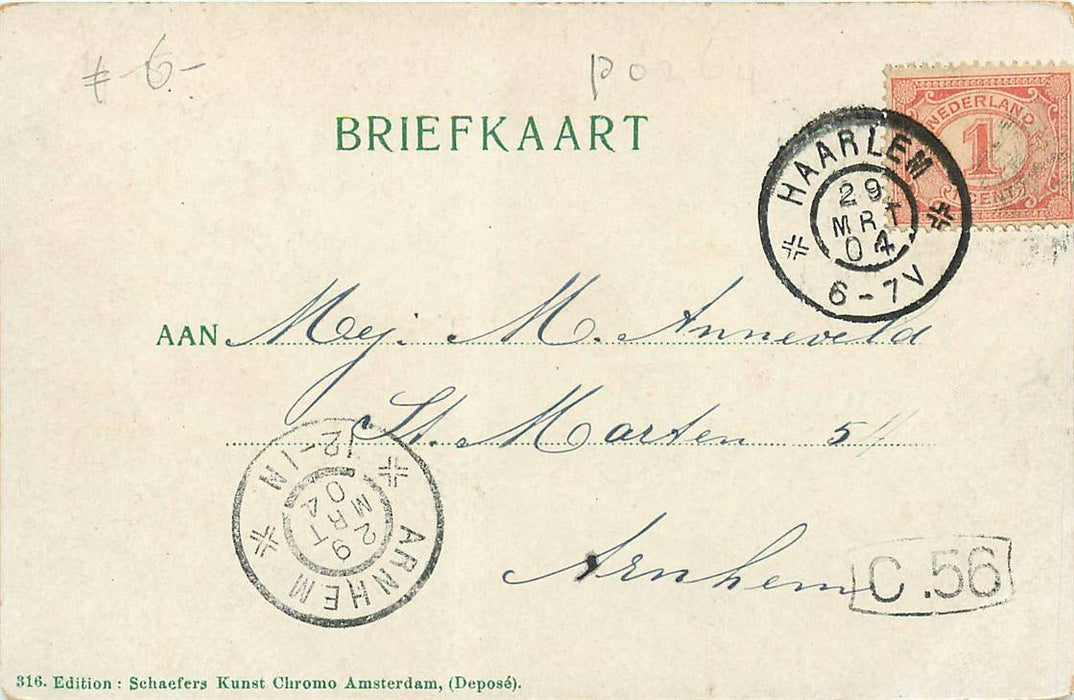 f 6-
P0264
BRIEFKAART
NEDERLAND
1
CENT
HAARLEM
29
MRT
04
6-7V
AAN Mej. M. Anneveld
St. Marten 54
Arnhem
12-1N
29
MRT
04
ARNHEM
C.56
316. Edition: Schaefers Kunst Chromo Amsterdam, (Deposé).